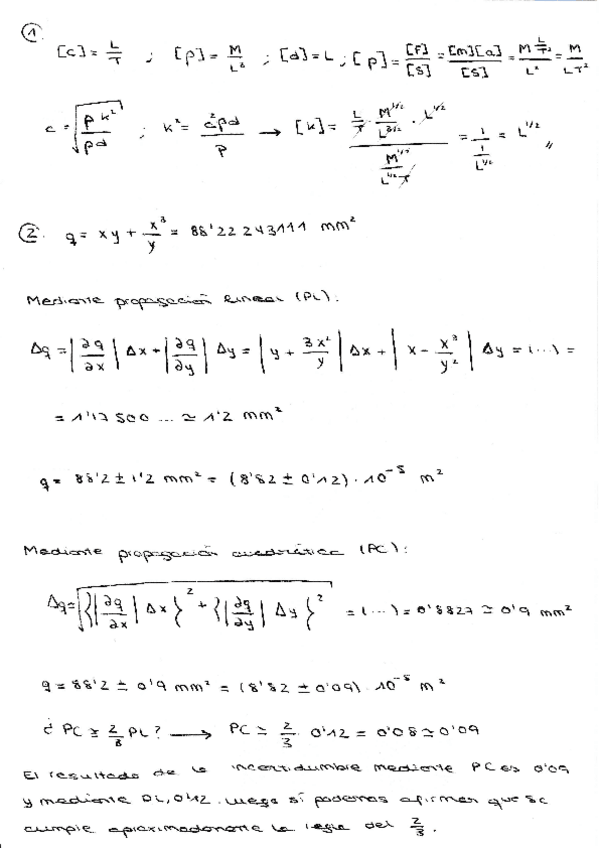 ① [c] = L/T ; [ρ] = M/L³ ; [d] = L ; [P] = [F]/[S] = [m][a]/[S] = M L/T² / L² = M/LT²
c = √(P k²/ρd) ; k² = c²ρd/P → [k] = (L/T · M^1/2/L^3/2 · L^1/2)/(M^1/2/L^1/2 T) = 1/(1/L^1/2) = L^1/2 //
② q = xy + x³/y = 88'22243111 mm²
Mediante propagación lineal (PL):
Δq = |∂q/∂x| Δx + |∂q/∂y| Δy = |y + 3x²/y| Δx + |x - x³/y²| Δy = (...) =
= 1'17500 ... ≃ 1'2 mm²
q = 88'2 ± 1'2 mm² = (8'82 ± 0'12) · 10⁻⁵ m²
Mediante propagación cuadrática (PC):
Δq = √({|∂q/∂x| Δx}² + {|∂q/∂y| Δy}²) = (...) = 0'8827 ≃ 0'9 mm²
q = 88'2 ± 0'9 mm² = (8'82 ± 0'09) · 10⁻⁵ m²
¿ PC ≃ 2/3 PL? → PC ≃ 2/3 0'12 = 0'08 ≃ 0'09
El resultado de la incertidumbre mediante PC es 0'09
y mediante PL, 0'12. Luego sí podemos afirmar que se
cumple aproximadamente la regla del 2/3.